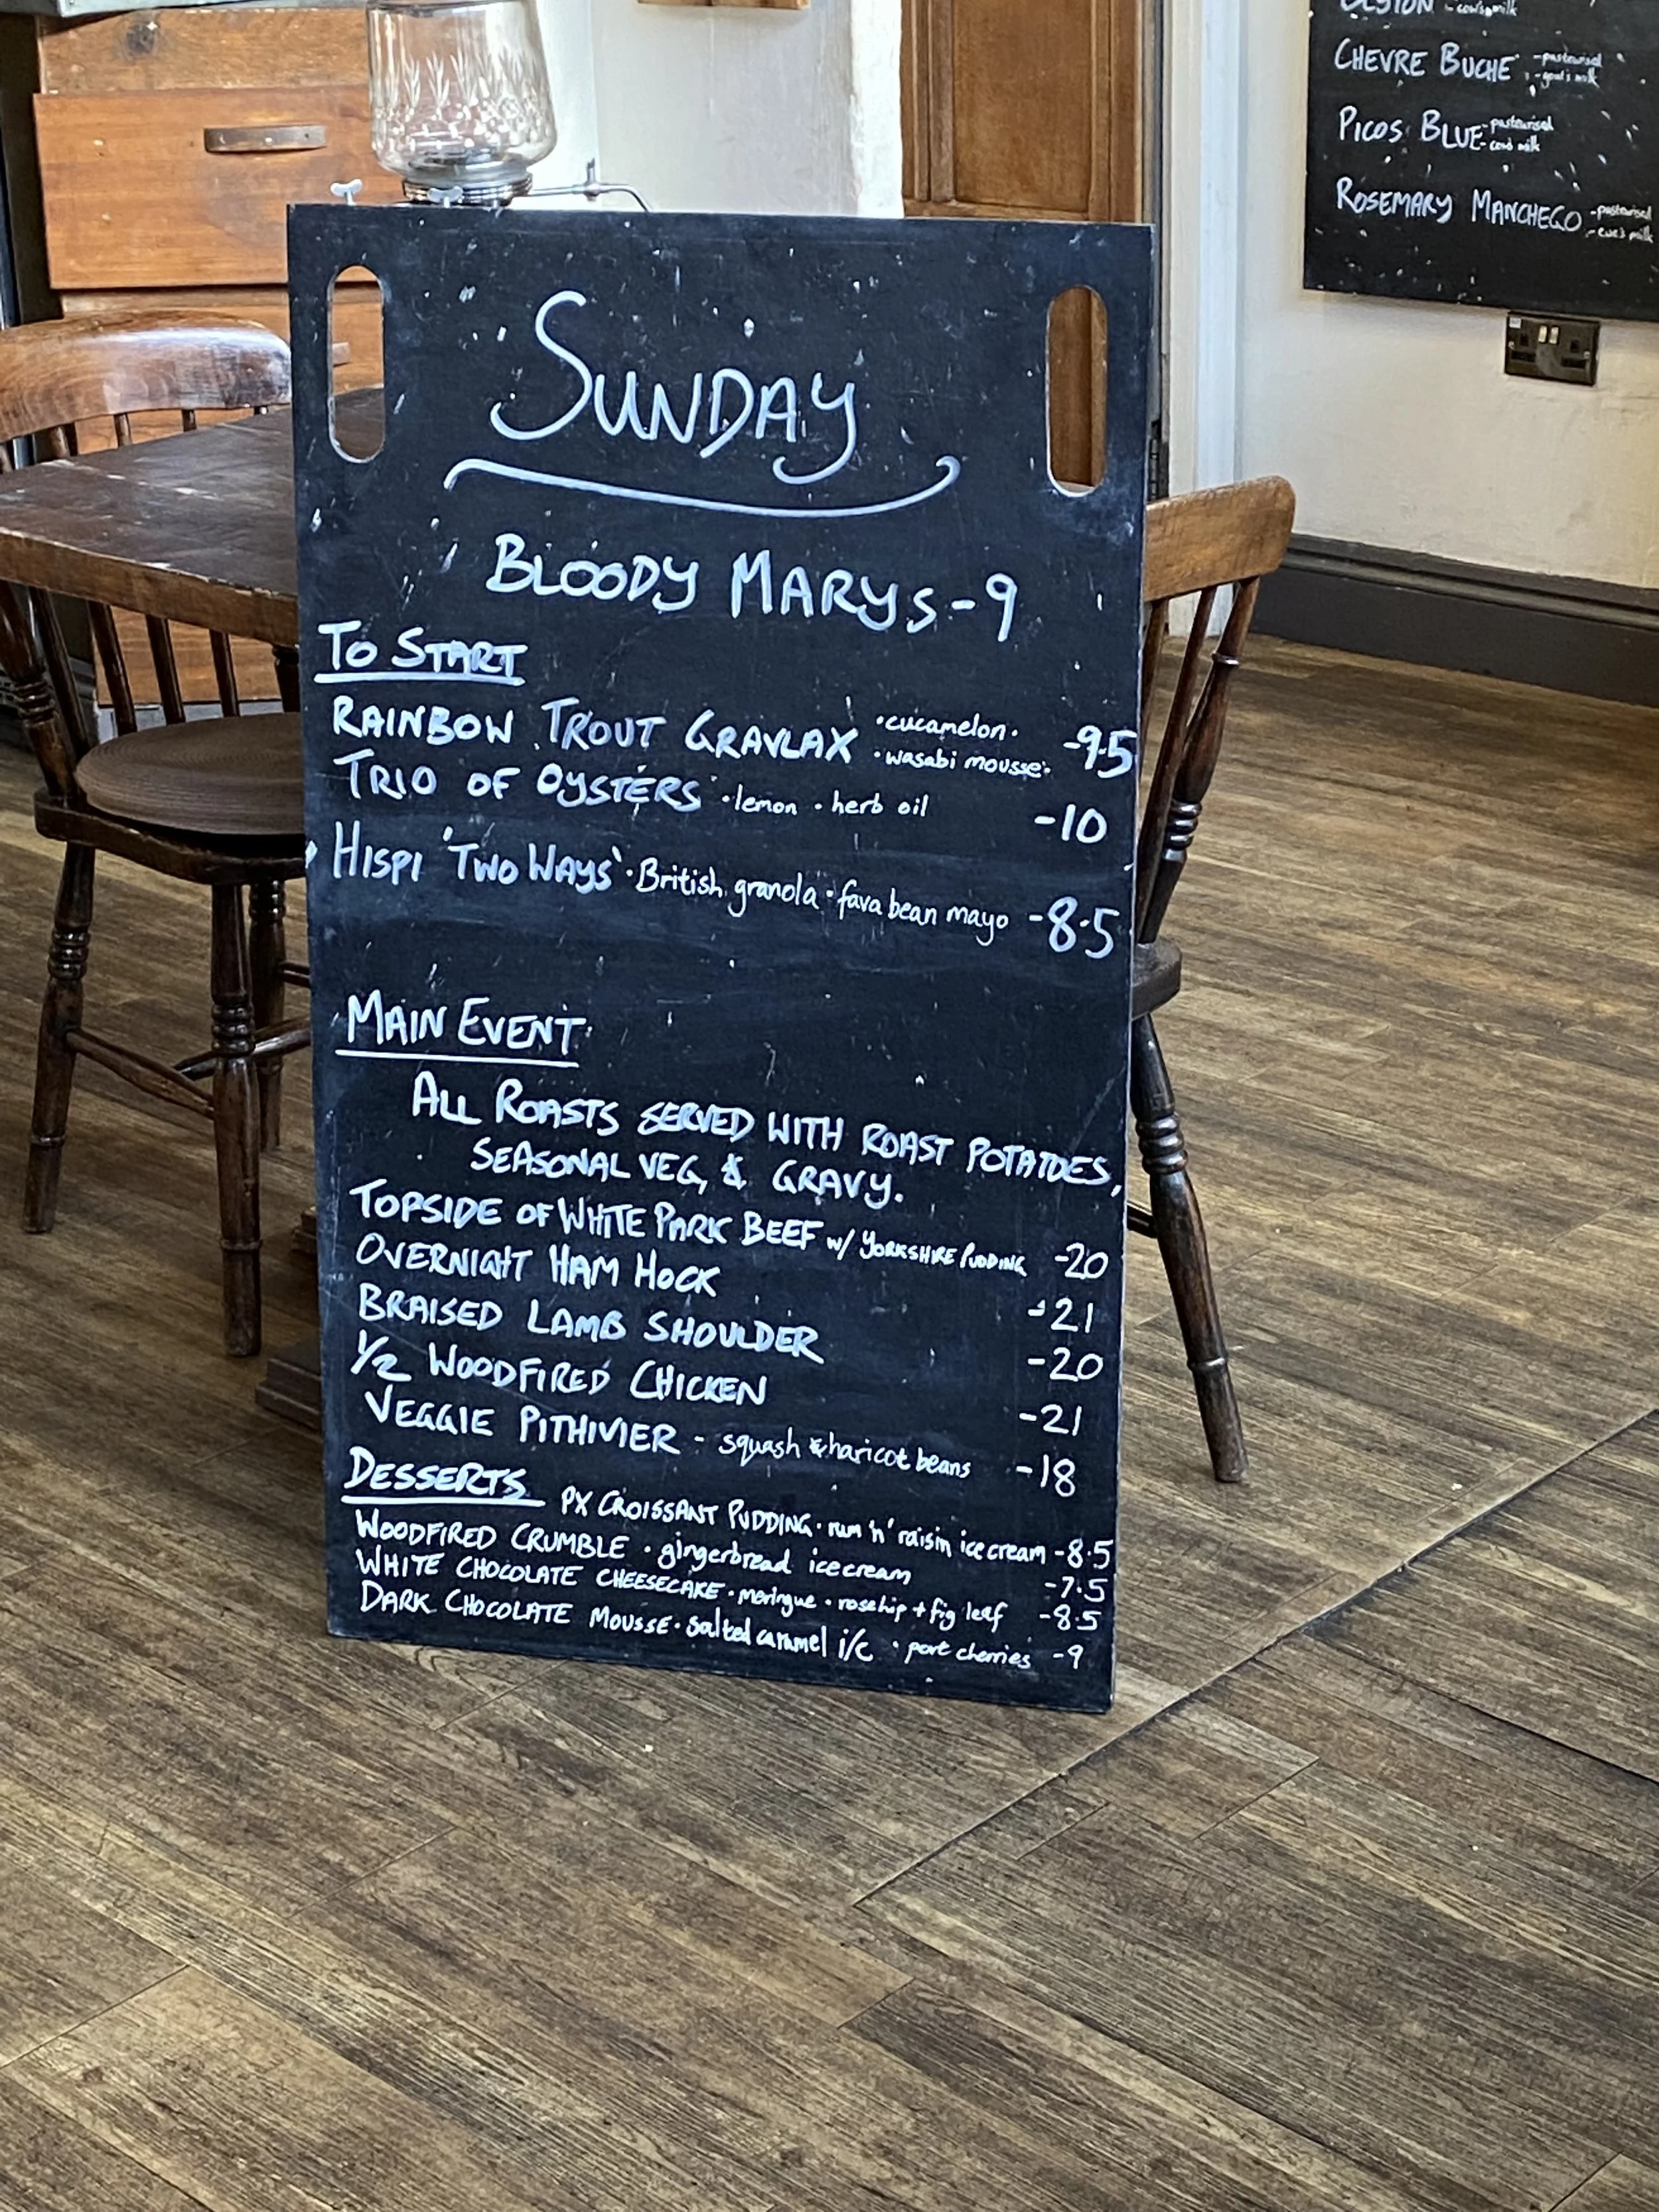 SUNDAY
BLOODY MARYS-9
TO START
RAINBOW TROUT GRAVLAX ·cucamelon· ·wasabi mousse· -9.5
TRIO OF OYSTERS ·lemon ·herb oil -10
HISPI 'TWO WAYS' ·British granola ·fava bean mayo -8.5
MAIN EVENT
ALL ROASTS SERVED WITH ROAST POTATOES,
SEASONAL VEG, & GRAVY.
TOPSIDE OF WHITE PARK BEEF w/ YORKSHIRE PUDDING -20
OVERNIGHT HAM HOCK -21
BRAISED LAMB SHOULDER -20
1/2 WOODFIRED CHICKEN -21
VEGGIE PITHIVIER - squash & haricot beans -18
DESSERTS
PX CROISSANT PUDDING · rum 'n' raisin ice cream -8.5
WOODFIRED CRUMBLE · gingerbread ice cream -7.5
WHITE CHOCOLATE CHEESECAKE · meringue · rosehip + fig leaf -8.5
DARK CHOCOLATE MOUSSE · salted caramel i/c · port cherries -9
-cows milk
CHEVRE BUCHE -pasteurised -goat's milk
PICOS BLUE -pasteurised -cows milk
ROSEMARY MANCHEGO -pasteurised -ewe's milk